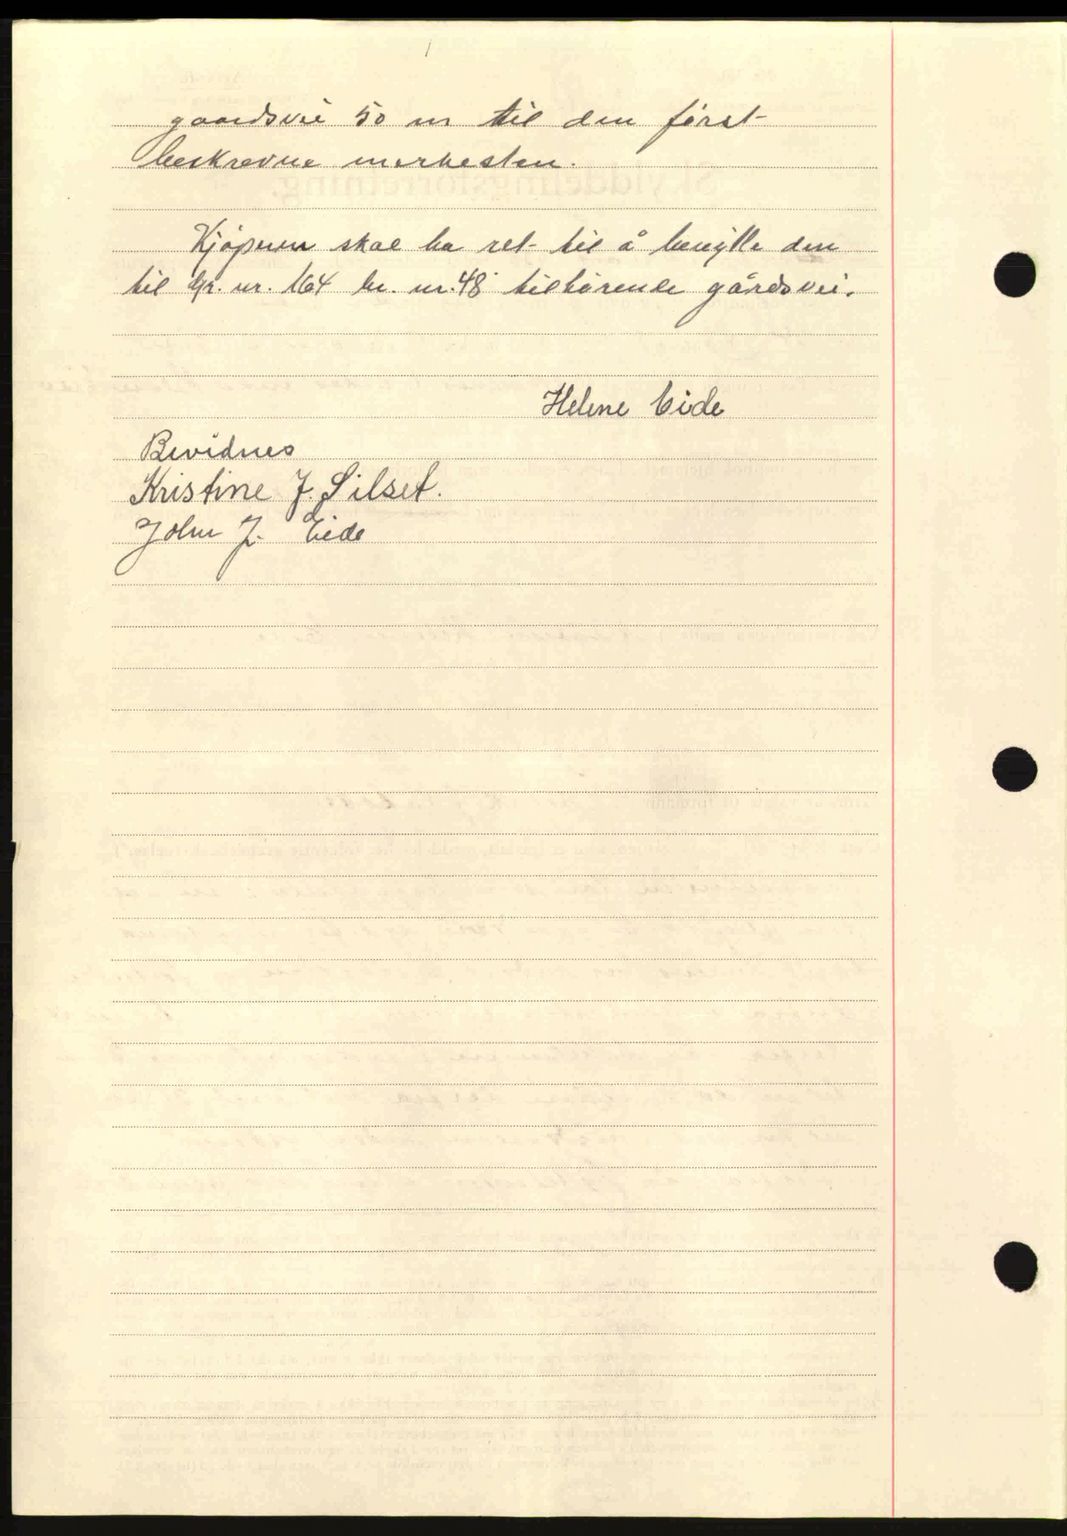 gaardsvei 50 m til den først-
beskrevne merkesten.
Kjøperen skal ha ret til å benytte den
til Gr. nr. 164 br. nr. 48 tilhørende gårdsvei.
Helene Eide
Bevidnes
Kristine J. Silset.
John J. Eide